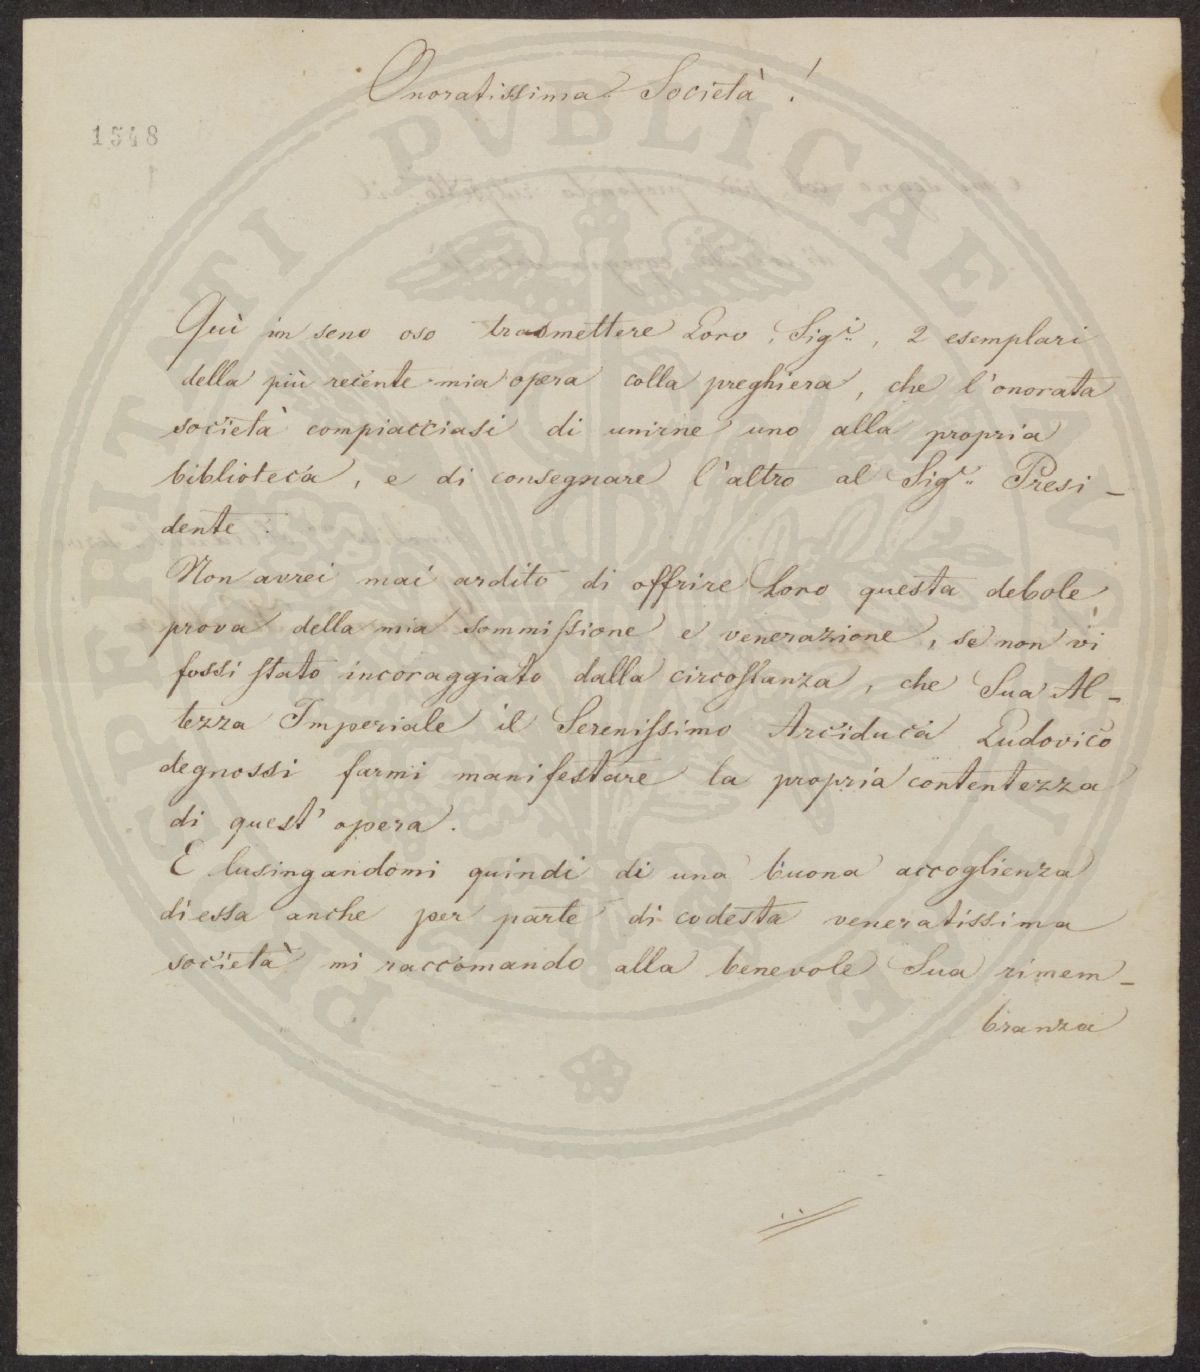 Onoratissima Società !
1548
Quì in seno oso trasmettere Loro, Sigi.., 2 esemplari
della più recente mia opera colla preghiera, che l'onorata
società compiacciasi di unirne uno alla propria
biblioteca, e di consegnare l'altro al Sigr.. Presi-
dente.
Non avrei mai ardito di offrire Loro questa debole
prova della mia sommiſsione e venerazione, se non vi
fossi ſtato incoraggiato dalla circoſtanza, che Sua Al-
tezza Imperiale il Sereniſsimo Arciduca Ludovico
degnossi farmi manifestare la propria contentezza
di quest' opera.
E lusingandomi quindi di una buona accoglienza
di essa anche per parte di codesta veneratissima
società mi raccomando alla benevole Sua rimem-
branza
PROSPERITATI PVBLICAE